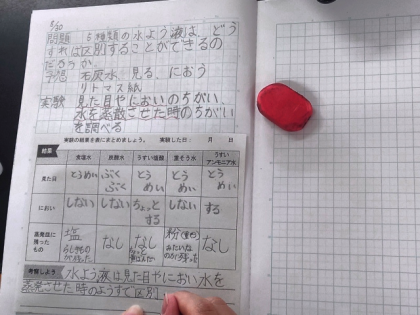 8/30
問題 5種類の水よう液は、どう
すれば区別することができるの
だろうか。
予想 石灰水、見る、におう
リトマス紙
実験 見た目やにおいのちがい、
水を蒸発させた時のちがい
を調べる
実験の結果を表にまとめましょう。 実験した日: 月 日
結果
食塩水 炭酸水 うすい塩酸 重そう水 うすいアンモニア水
見た目 とうめい ぶくぶく とうめい とうめい とうめい
におい しない しない ちょっとする しない する
蒸発後に残ったもの 塩 なし なし 粉 なし
考察しよう 水よう液は見た目やにおい水を
蒸発させた時のようすで区別